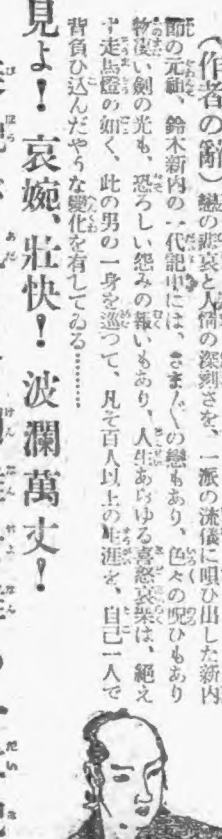 (作者の辭)、戀の悲哀と人情の深刻さを、一派の流儀に唄ひ出した新内
節の元祖、鈴木新内の一代記中には、さま〴〵の戀もあり、色々の呪ひもあり
物凄い劍の光も、恐ろしい怨みの報いもあり、人生あらゆる喜怒哀樂は、絶え
ず走馬燈の如く、此の男の一身を巡つて、凡そ百人以上の生涯を、自己一人で
背負ひ込んだやうな變化を有してゐる………
見よ!哀婉、壯快!波瀾萬丈!